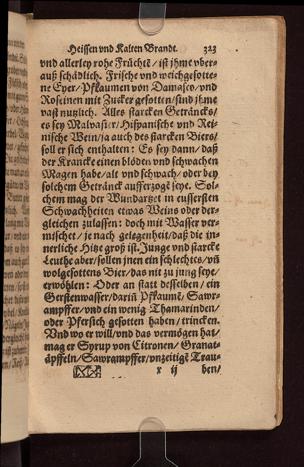 Heissen vnd Kalten Brandt. 323
vnd allerley rohe Früchtē/ ist jhme vber-
auß schädlich. Frische vnd weichgesotte-
ne Eyer/ Pflaumen von Damasco/ vnd
Roseinen mit Zucker gesotten/ sind jhme
vast nutzlich. Alles starcken Getráncks/
es sey Malvasier/ Hispanische vnd Rei-
nische Wein/ ja auch des starcken Biers/
soll er sich enthalten: Es sey dann/ daß
der Krancke einen blöden vnd schwachen
Magen habe/ alt vnd schwach/ oder bey
solchem Getránck aufferzogē seye. Sol-
chem mag der Wundartzet in eussersten
Schwachheiten etwas Weins oder der-
gleichen zulassen: doch mit Wasser ver-
mischet/ je nach gelegenheit/ daß die in-
nerliche Hitz groß ist. Junge vnd starcke
Leuthe aber/ sollen jnen ein schlechtes/ vñ
wolgesottens Bier/ das nit zu jung seye/
erwöhlen: Oder an statt desselben/ ein
Gerstenwasser/ dariñ Pflaumē/ Sawr-
ampffer/ vnd ein wenig Thamarinden/
oder Pfersich gesotten haben/ trincken.
Vnd wo er will/ vnd das vermögen hat/
mag er Syrup von Citronen/ Granat-
äpffeln/ Sawrampffer/ vnzeitigē Trau-
x ij ben/